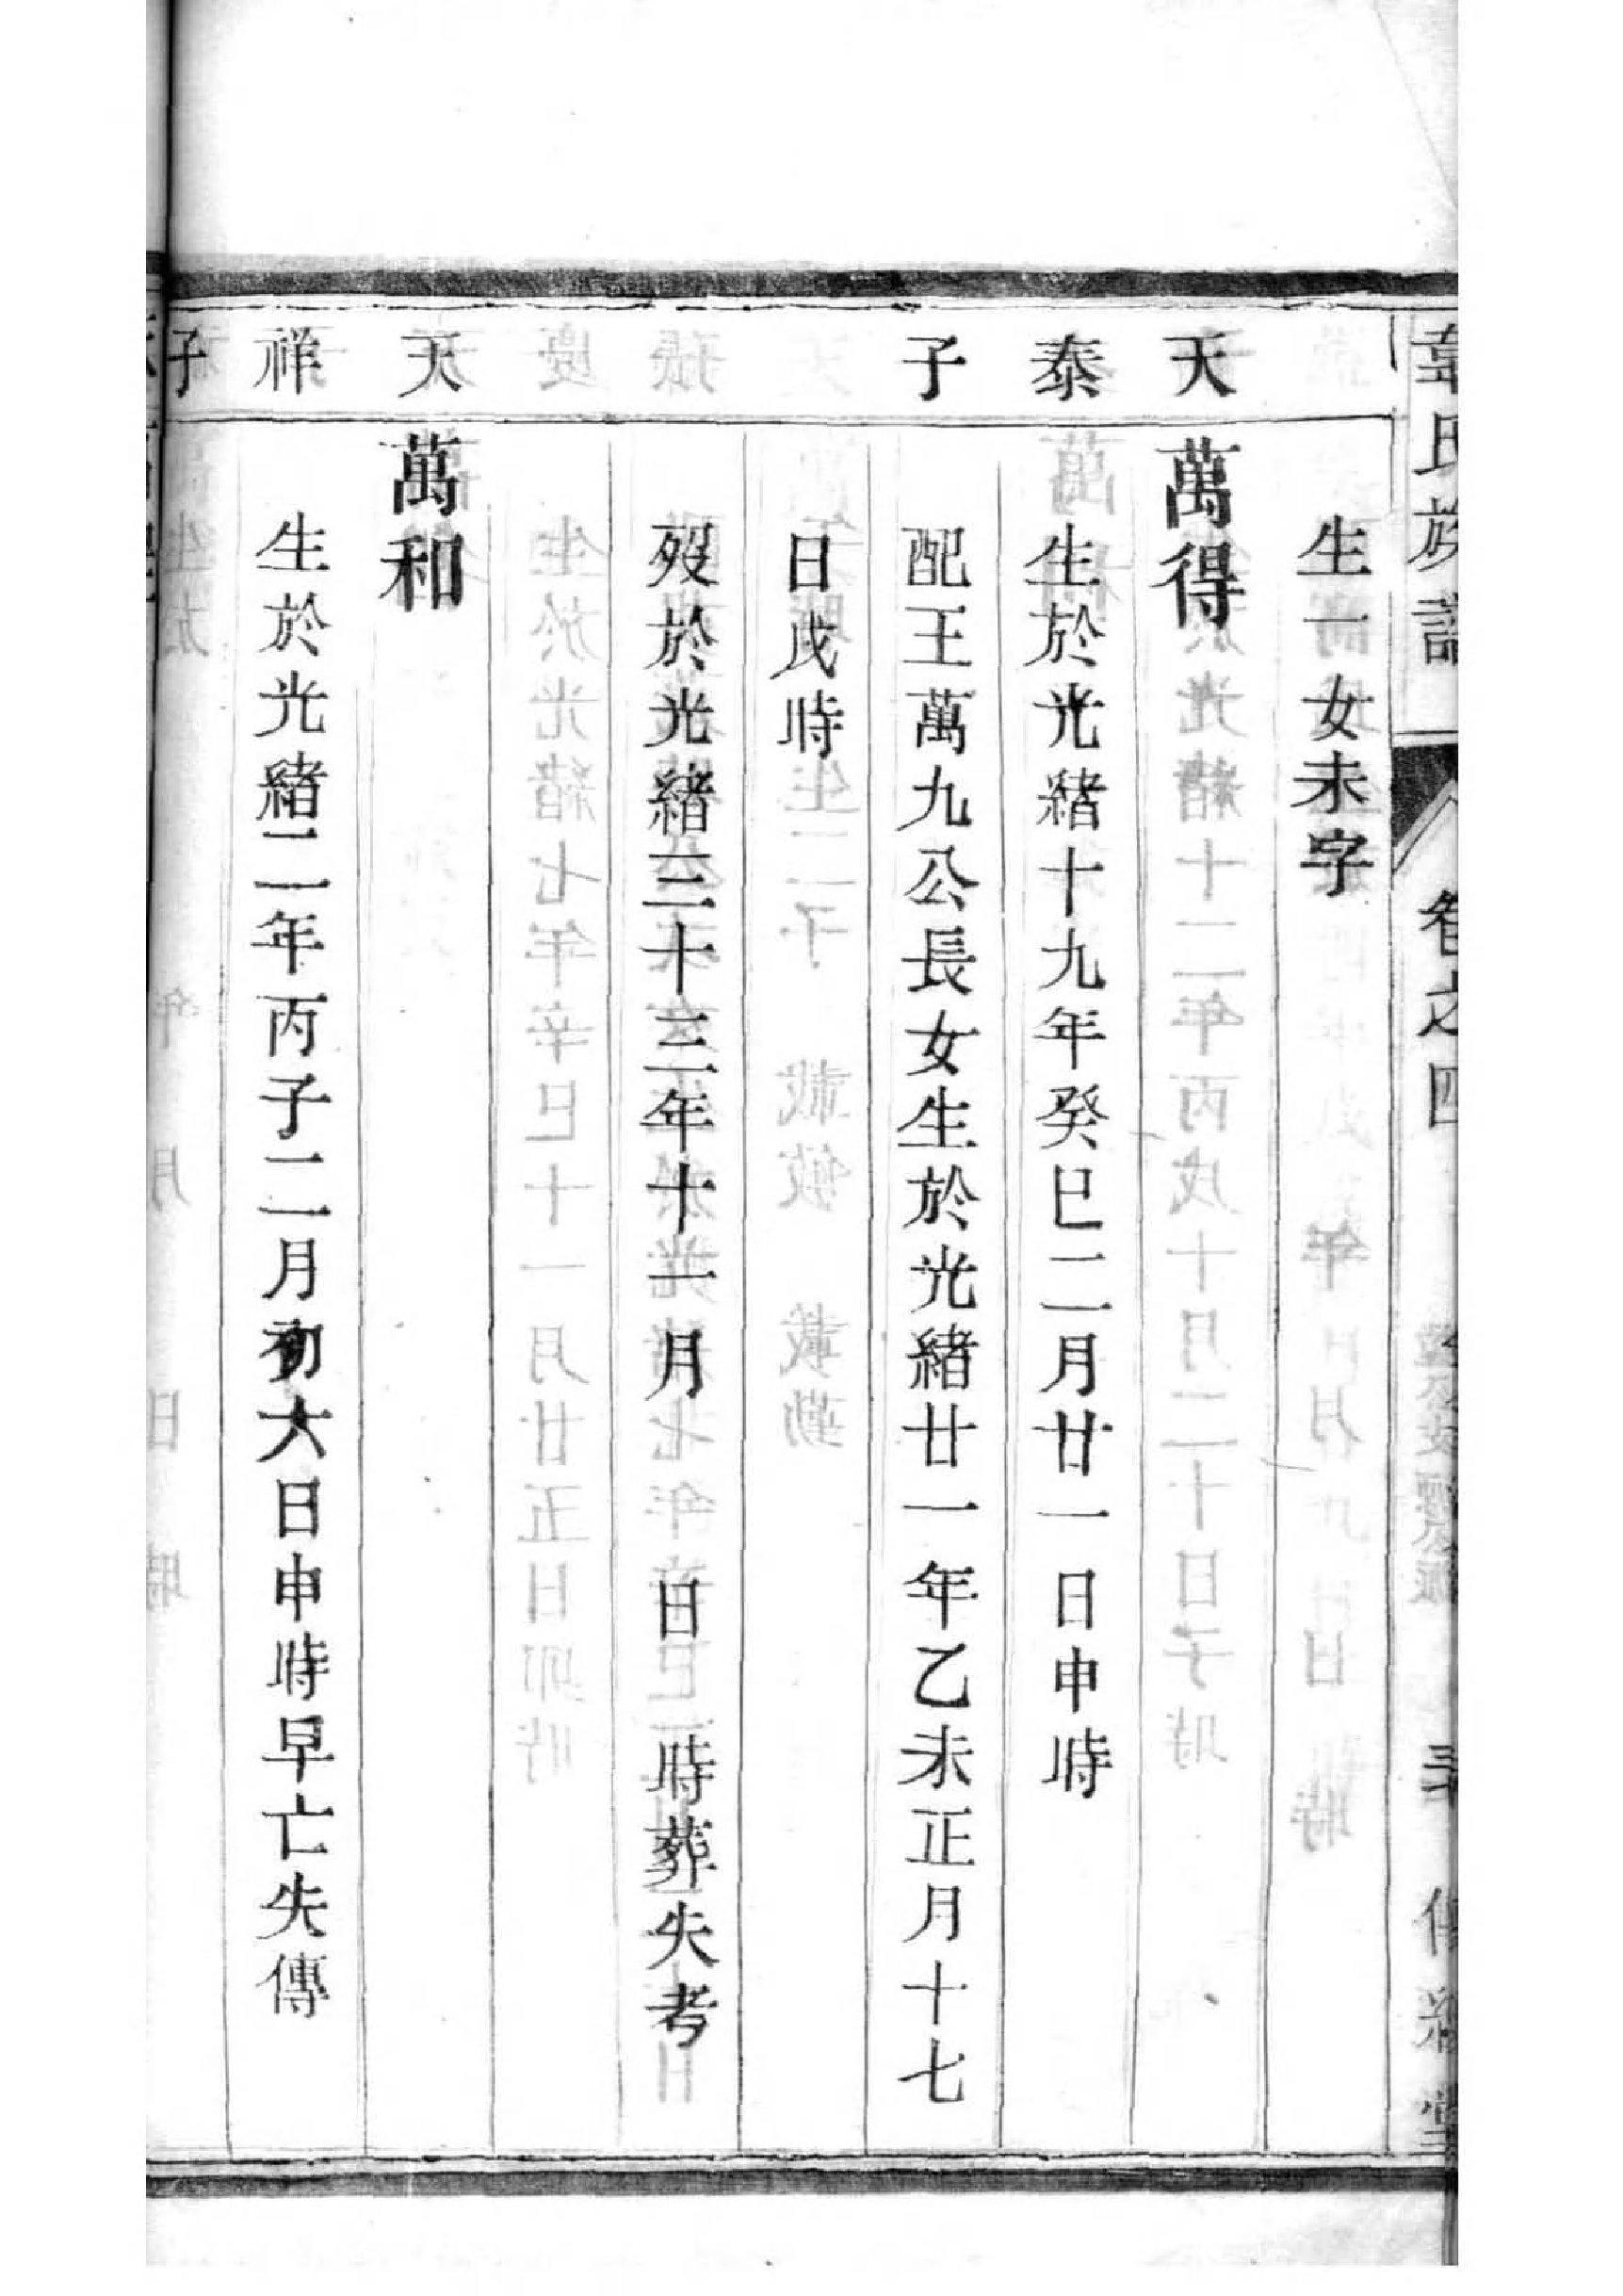 韋氏族譜 卷之四
生一女未字
天 萬得
泰 生於光緒十九年癸巳二月廿一日申時
子 配王萬九公長女生於光緒廿一年乙未正月十七
日戌時
歿於光緒三十三年十一月 日 時葬失考
天 萬和
祥 生於光緒二年丙子二月初六日申時早亡失傳
子